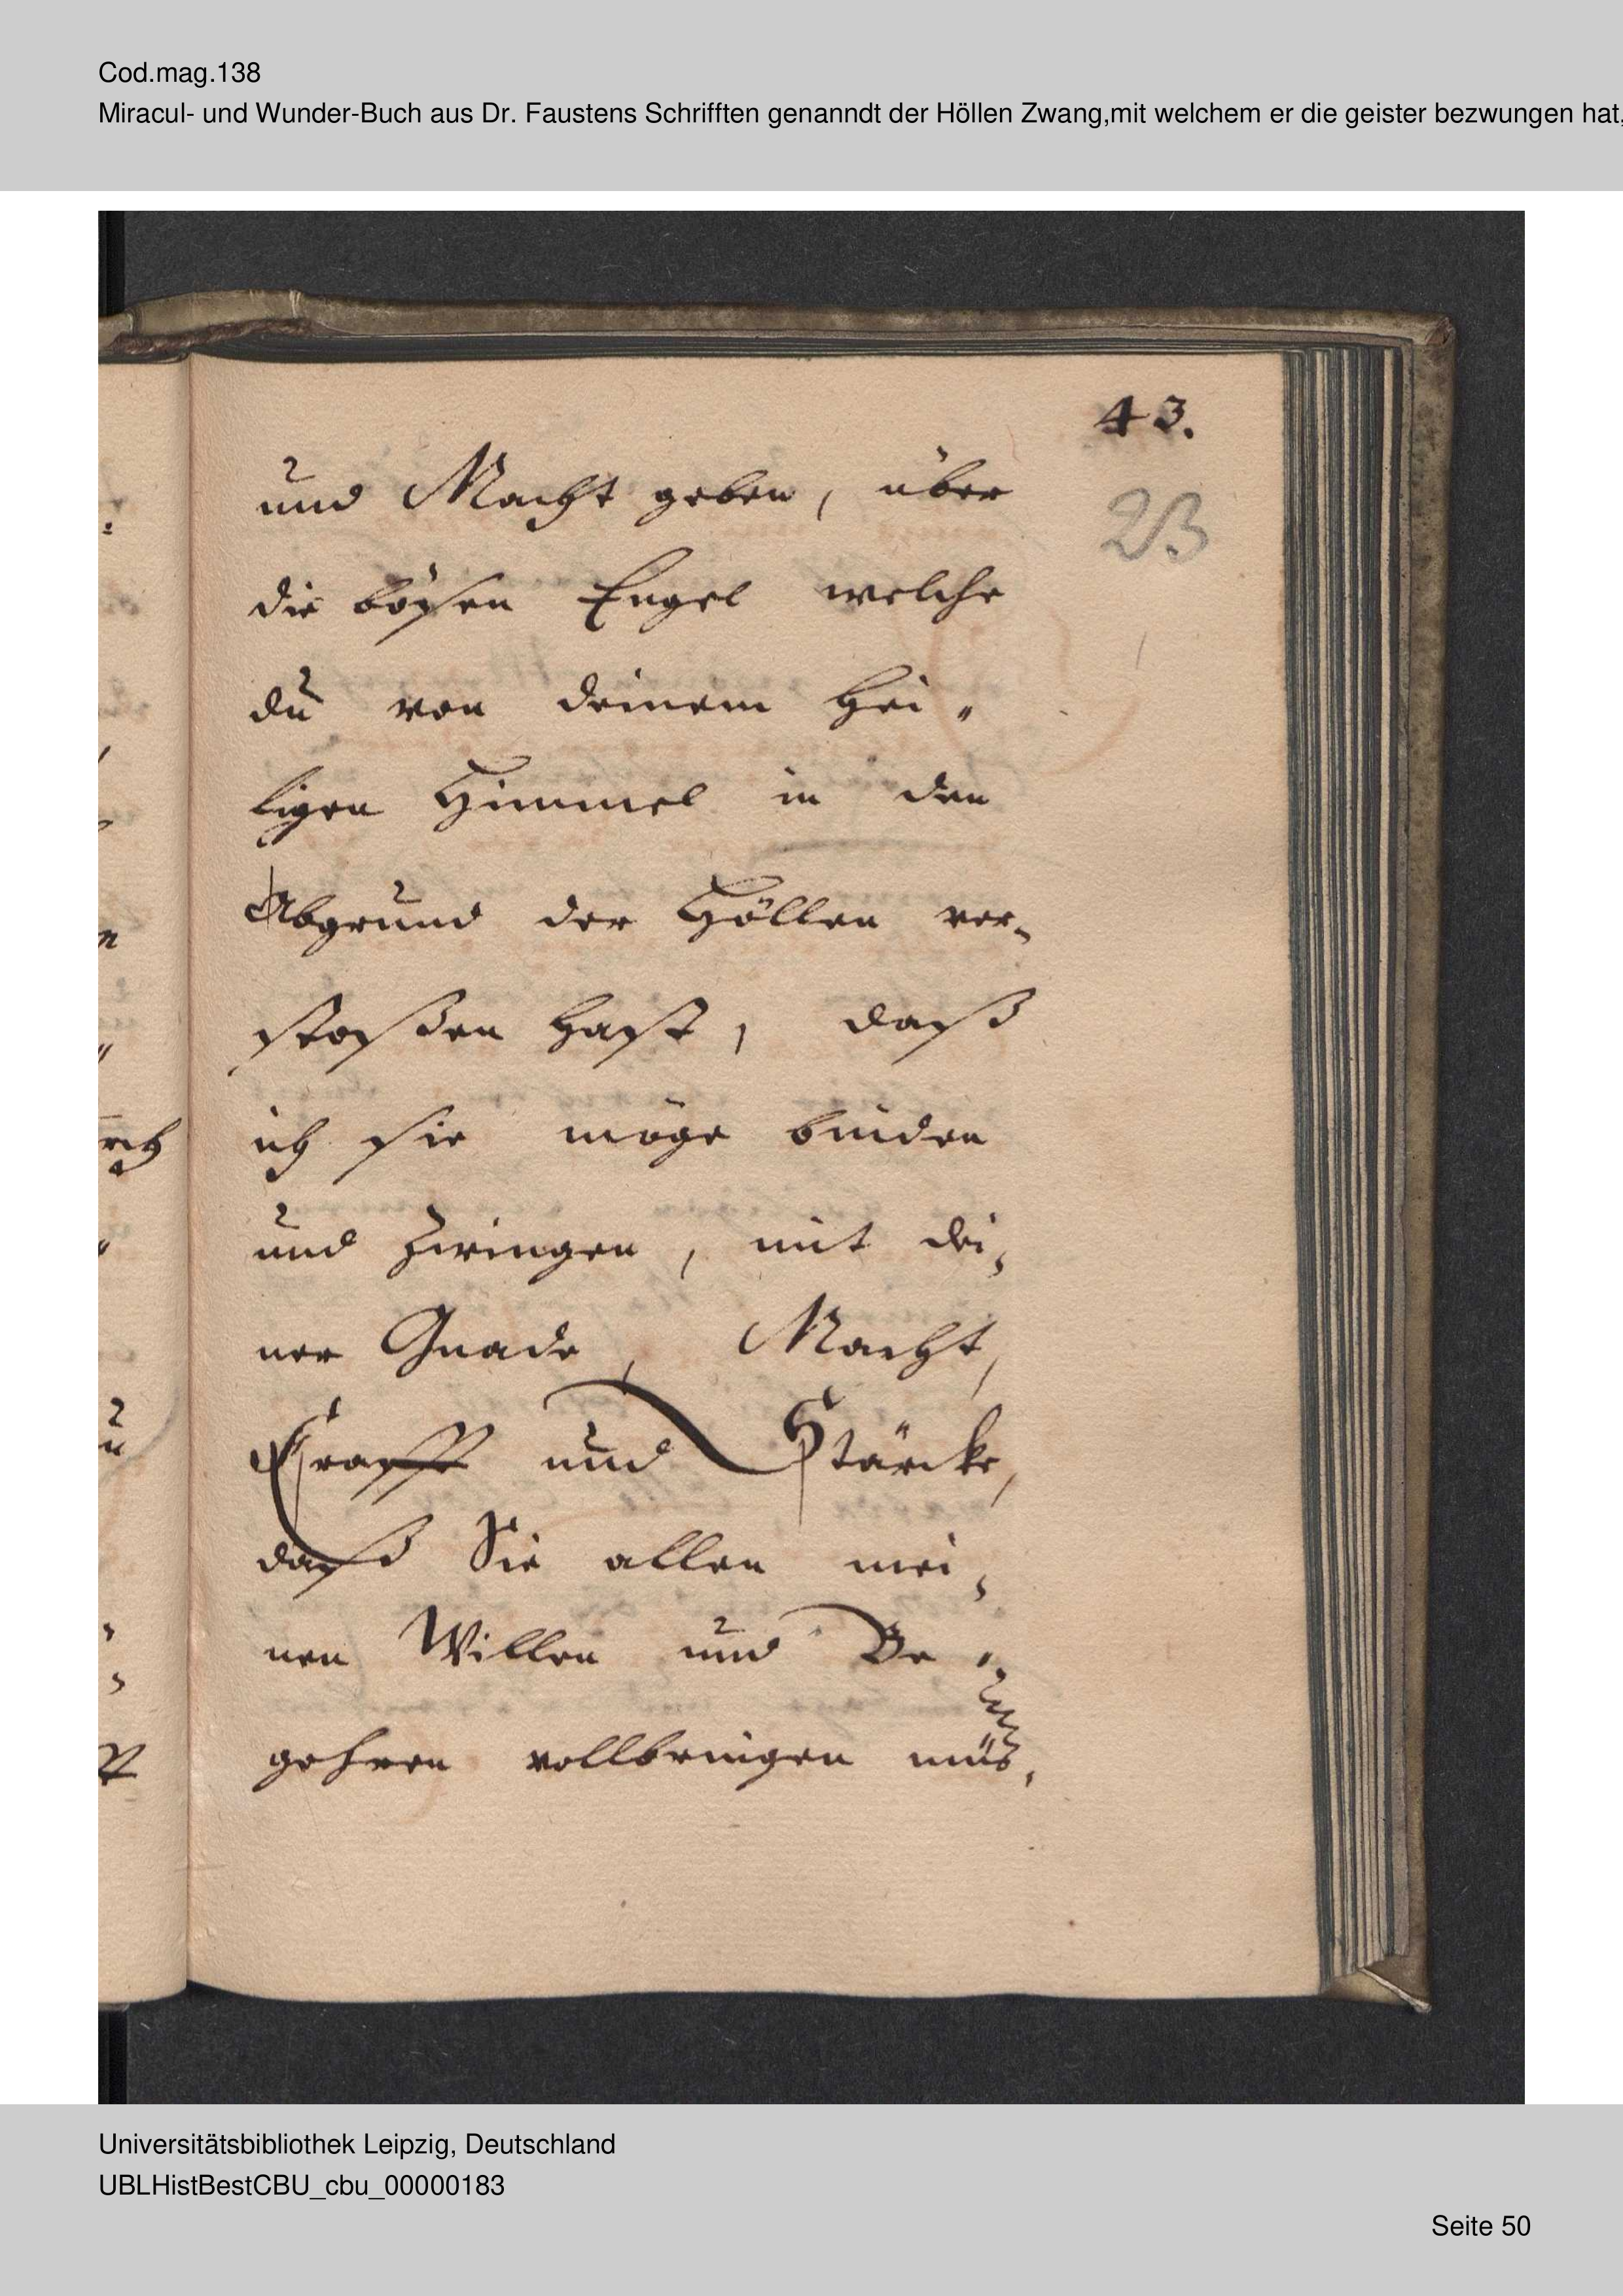 Cod.mag.138
Miracul- und Wunder-Buch aus Dr. Faustens Schrifften genanndt der Höllen Zwang,mit welchem er die geister bezwungen hat,
43.
23
und Macht geben, über
die bösen Engel welche
du von deinem hei„
ligen Himmel in den
Abgrund der Höllen ver-
stoßen hast, daß
ich sie möge binden
und zwingen, mit dei,
ner Gnade, Macht,
Crafft und Stärcke,
daß Sie allen mei,
nen Willen und Be„
gehren vollbringen müs,
Universitätsbibliothek Leipzig, Deutschland
UBLHistBestCBU_cbu_00000183
Seite 50